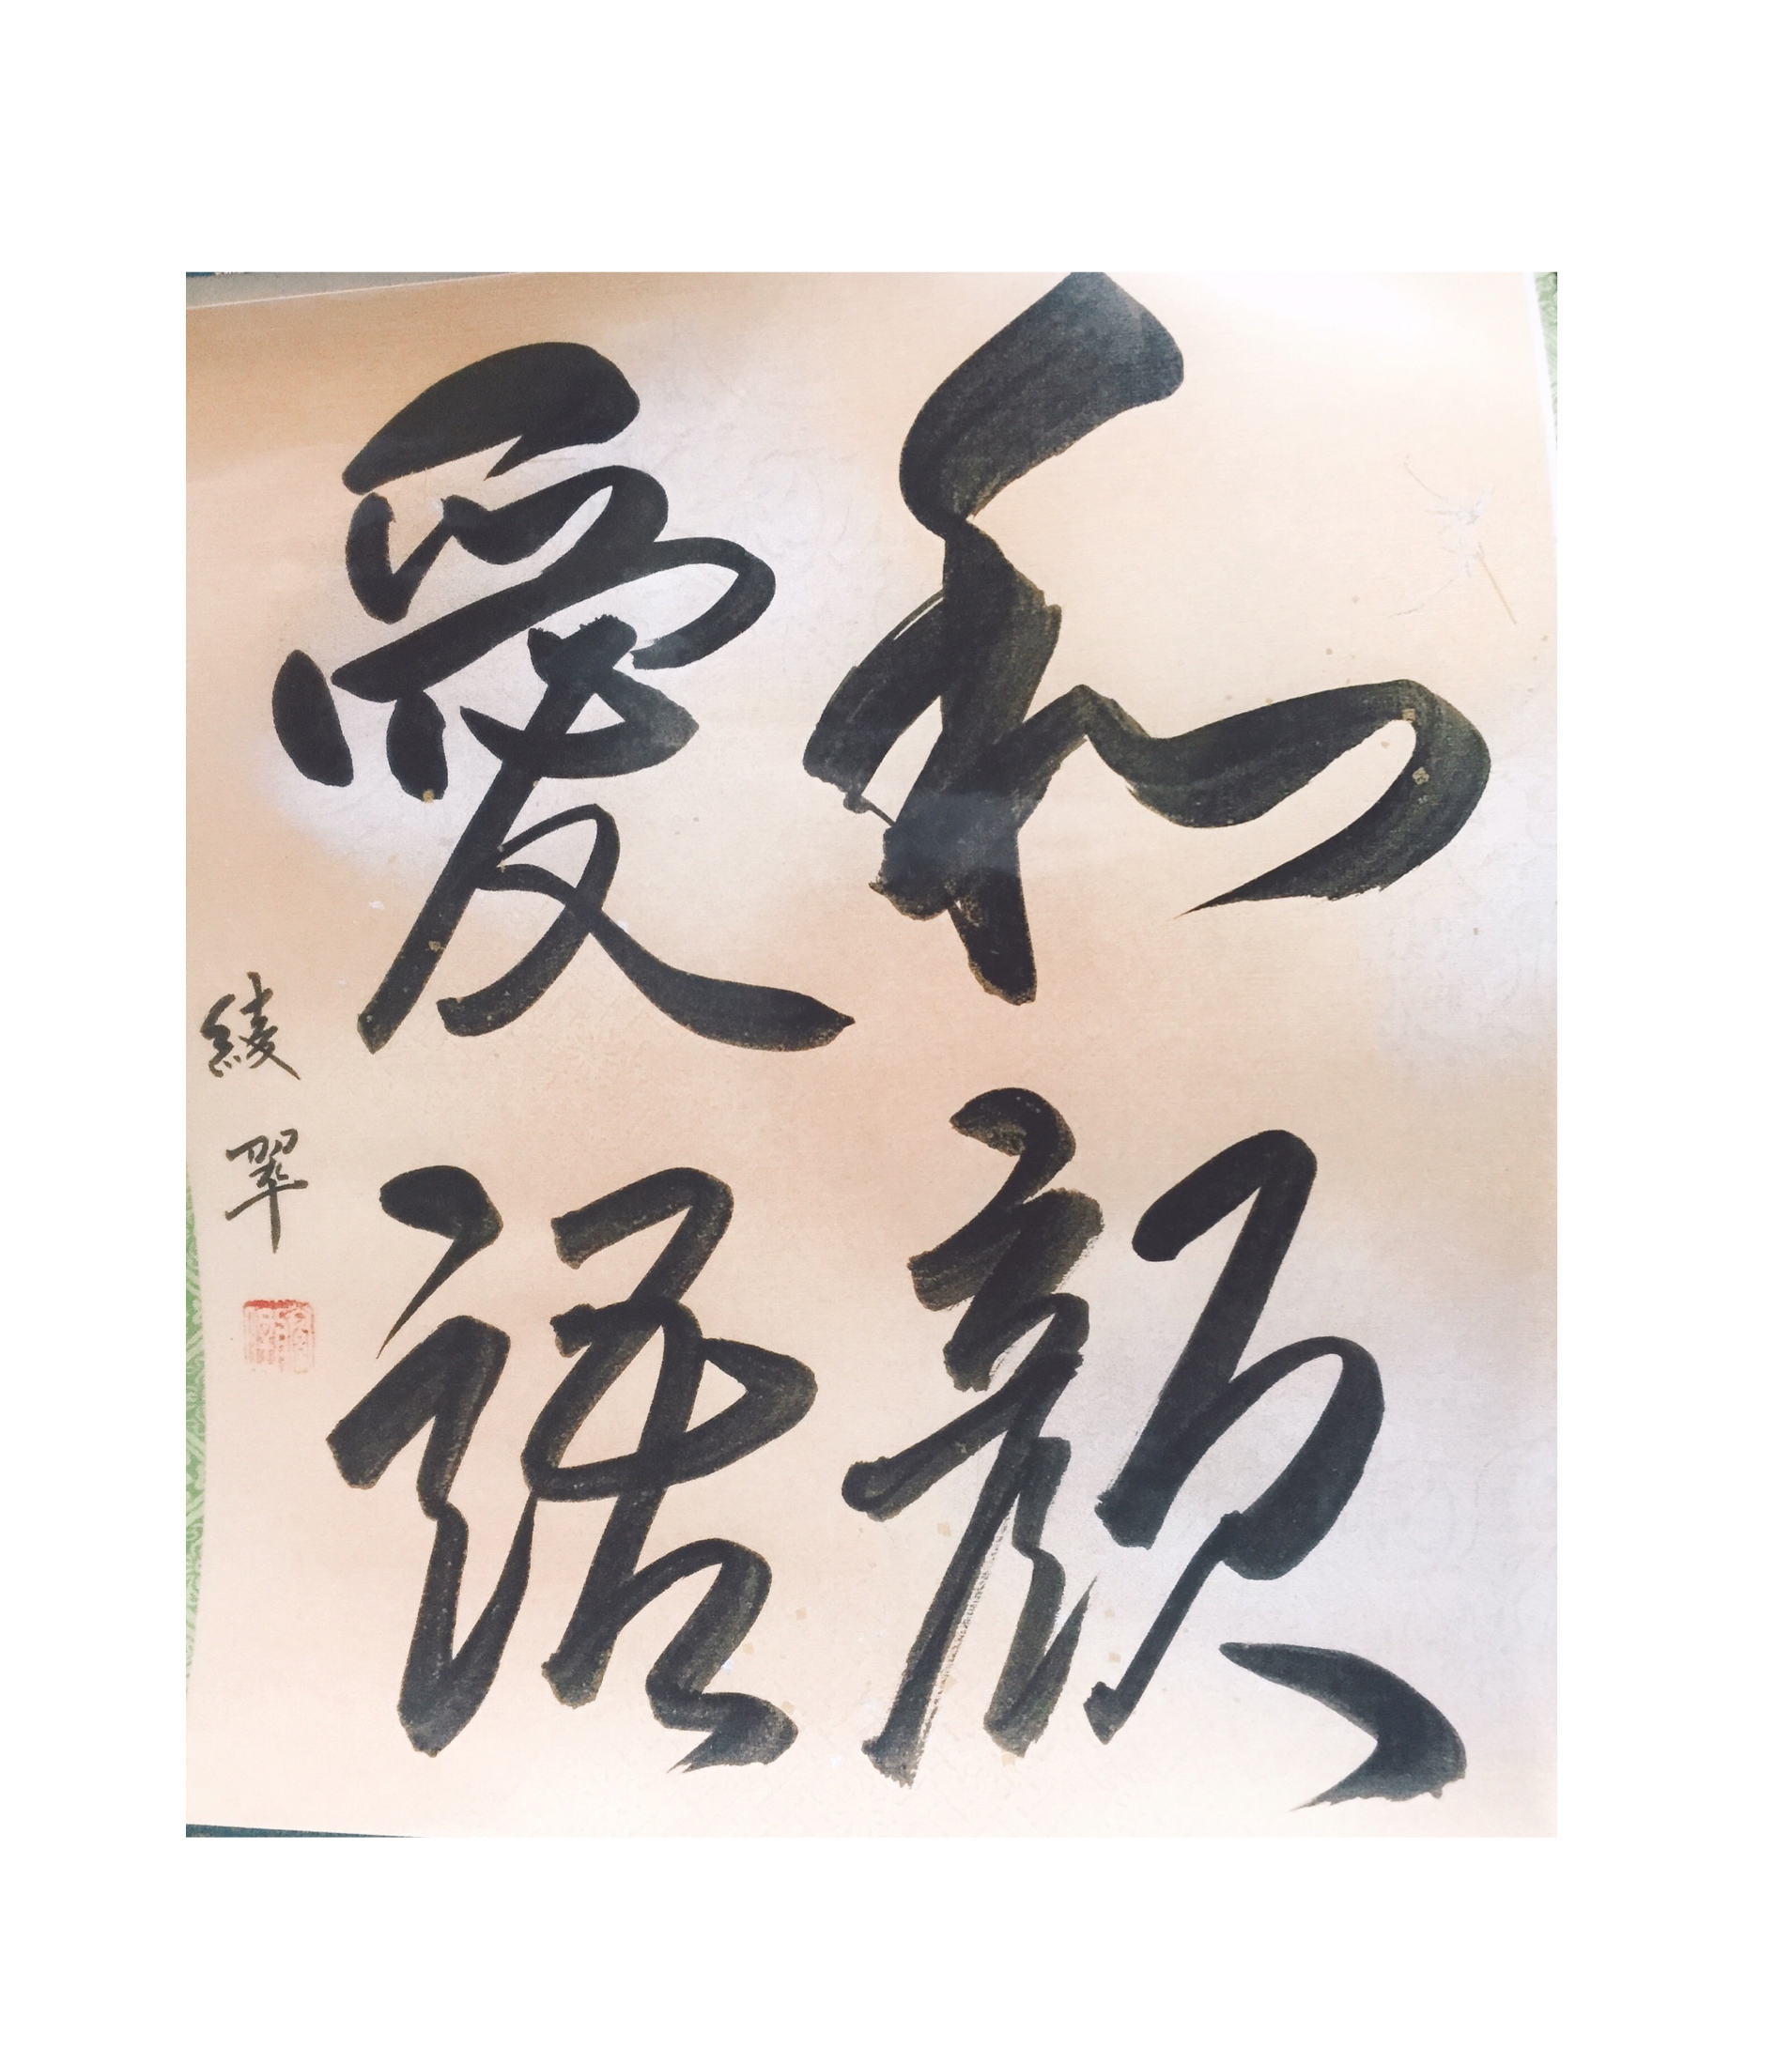 和顔
愛語
綾翠